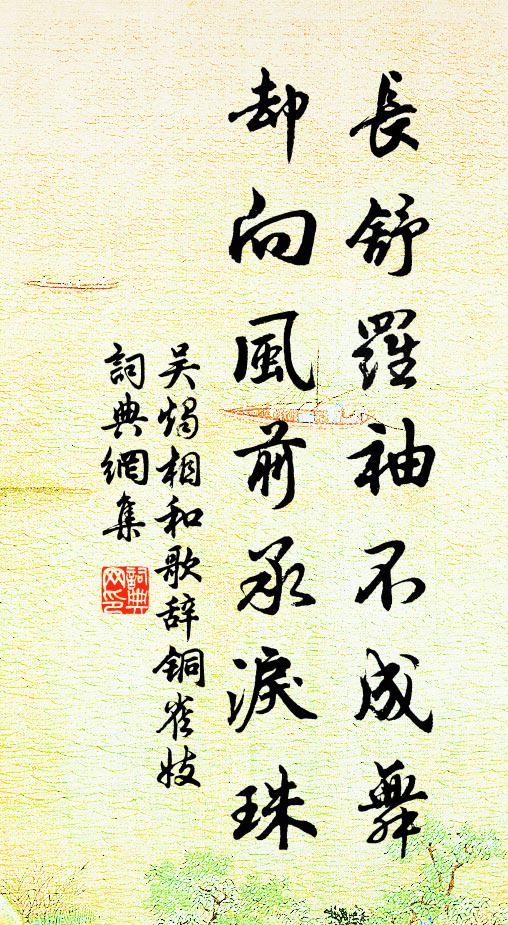 長舒羅袖不成舞
却向風前承淚珠
吴燭相和歌辞铜雀妓
詞典網集
詞典网印